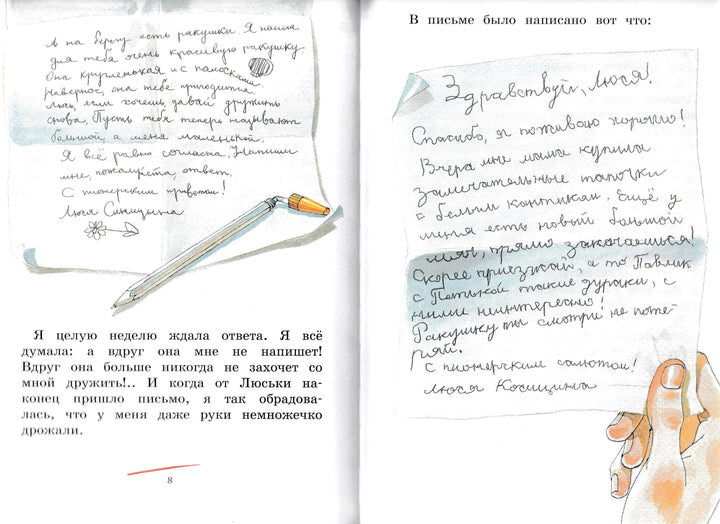 А на берегу есть ракушки. Я нашла
для тебя очень красивую ракушку.
Она кругленькая и с полосками.
Наверное, она тебе пригодится.
Люсь, если хочешь, давай дружить
снова. Пусть тебя теперь называют
большой, а меня маленькой.
Я всё равно согласна. Напиши
мне, пожалуйста, ответ.
С пионерским приветом!
Люся Синицына
Я целую неделю ждала ответа. Я всё
думала: а вдруг она мне не напишет!
Вдруг она больше никогда не захочет со
мной дружить!.. И когда от Люськи на-
конец пришло письмо, я так обрадова-
лась, что у меня даже руки немножечко
дрожали.
8
В письме было написано вот что:
Здравствуй, Люся!
Спасибо, я поживаю хорошо!
Вчера мне мама купила
замечательные тапочки
с белым кантикам. Ещё у
меня есть новый большой
мяч, прямо закачаешься!
Скорее приезжай, а то Павлик
с Петькой такие дураки, с
ними неинтересно!
Ракушку ты смотри не поте-
ряй.
С пионерским салютом!
Люся Косицына